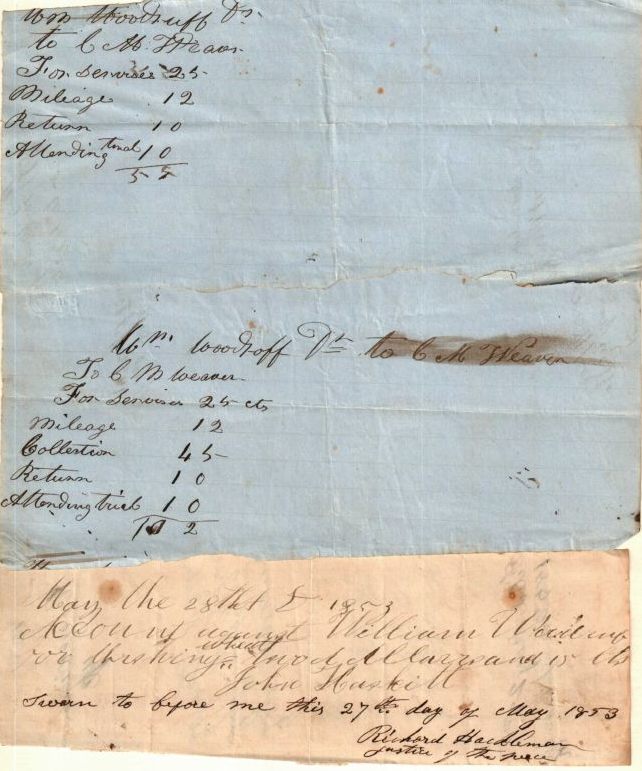 Wm Woodruff Dr.
to C M Weaver
For Services 25
Mileage 12
Return 10
Attending trial 10
55
Wm. Woodroff Dr to C M Weaver
To C M Weaver
For Services 25 cts
Mileage 12
Collection 45
Return 10
Attending trial 10
102
May the 28tht 1853
Account against William
for thrshing wheat Dollars and 15 cts
John Haskill
Sworn to before me this 27th day of May 1853
Richard Hackleman
justice of the peace